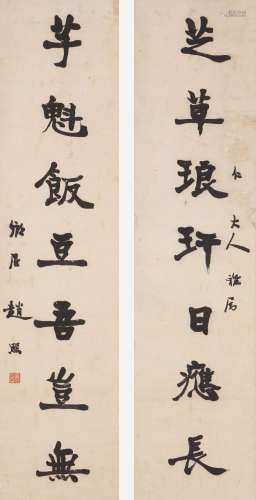 芝草琅玕日應長
仁 大人雅属
芋魁飯豆吾豈無
趙熙